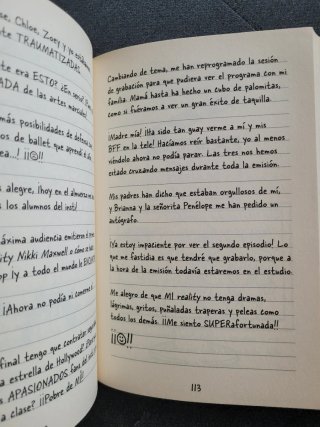 se, Chloe, Zoey y yo
nte TRAUMATIZADAS.
te era ESTO? ¿En serio?
ADA de las artes marciales!
más posibilidades de
os de ballet que aprendí a
ea...! ¡¡☹!!
s alegre, ¡hoy en el
los alumnos del insti!
áxima audiencia emitieron
ity Nikki Maxwell o cómo
op ly a todo el mundo le
¡Ahora no podía ni comerme
final tengo que contratar
a estrella de Hollywood!
s APASIONADOS fans del
a clase? ¡¡¡Pobre de MÍ!!
Cambiando de tema, me han reprogramado la sesión
de grabación para que pudiera ver el programa con mi
familia. Mamá hasta ha hecho un cubo de palomitas,
como si fuéramos a ver un gran éxito de taquilla.
¡Madre mía! ¡Ha sido tan guay verme a mí y mis
BFF en la tele! Hacíamos reír bastante, yo al menos
viéndolo ahora no podía parar. Las tres nos hemos
estado cruzando mensajes durante toda la emisión.
Mis padres han dicho que estaban orgullosos de mí,
y Brianna y la señorita Penélope me han pedido un
autógrafo.
¡Ya estoy impaciente por ver el segundo episodio! Lo
que me fastidia es que tendré que grabarlo, porque a
la hora de la emisión todavía estaremos en el estudio.
Me alegro de que MI reality no tenga dramas,
lágrimas, gritos, puñaladas traperas y peleas como
todos los demás. ¡¡Me siento SUPERafortunada!!
¡¡☺!!
113